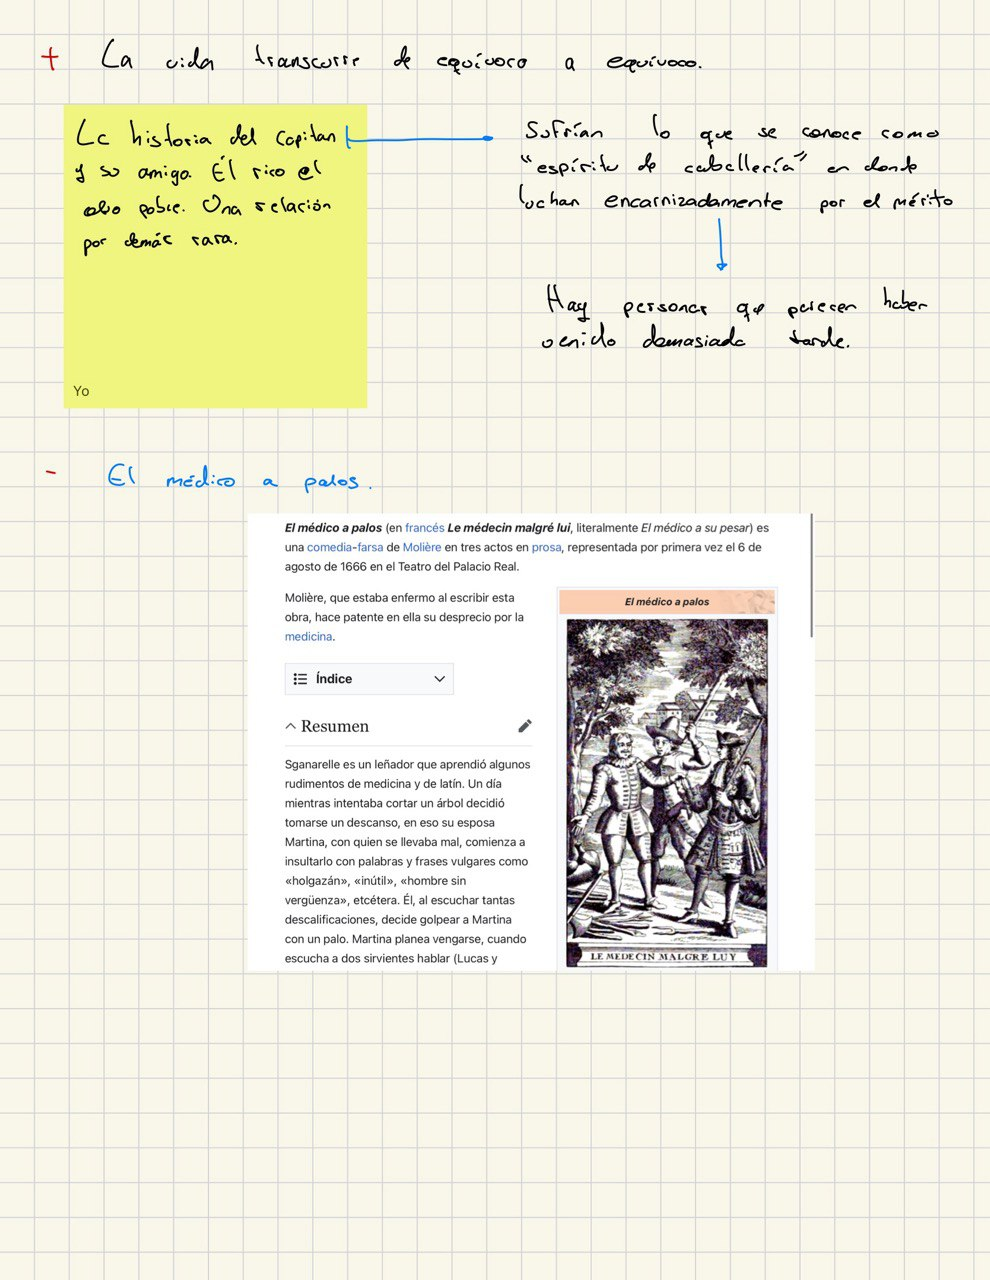 + La vida transcurre de equívoco a equívoco.
La historia del capitan
y su amigo. Él rico el
otro pobre. Una relación
por demás rara.
Yo
Sufrían lo que se conoce como
"espíritu de caballería" en donde
luchan encarnizadamente por el mérito
Hay personas que parecen haber
venido demasiado tarde.
- El médico a palos.
El médico a palos (en francés Le médecin malgré lui, literalmente El médico a su pesar) es
una comedia-farsa de Molière en tres actos en prosa, representada por primera vez el 6 de
agosto de 1666 en el Teatro del Palacio Real.
Molière, que estaba enfermo al escribir esta
obra, hace patente en ella su desprecio por la
medicina.
Índice
Resumen
Sganarelle es un leñador que aprendió algunos
rudimentos de medicina y de latín. Un día
mientras intentaba cortar un árbol decidió
tomarse un descanso, en eso su esposa
Martina, con quien se llevaba mal, comienza a
insultarlo con palabras y frases vulgares como
«holgazán», «inútil», «hombre sin
vergüenza», etcétera. Él, al escuchar tantas
descalificaciones, decide golpear a Martina
con un palo. Martina planea vengarse, cuando
escucha a dos sirvientes hablar (Lucas y
El médico a palos
LE MEDECIN MALGRE LUY